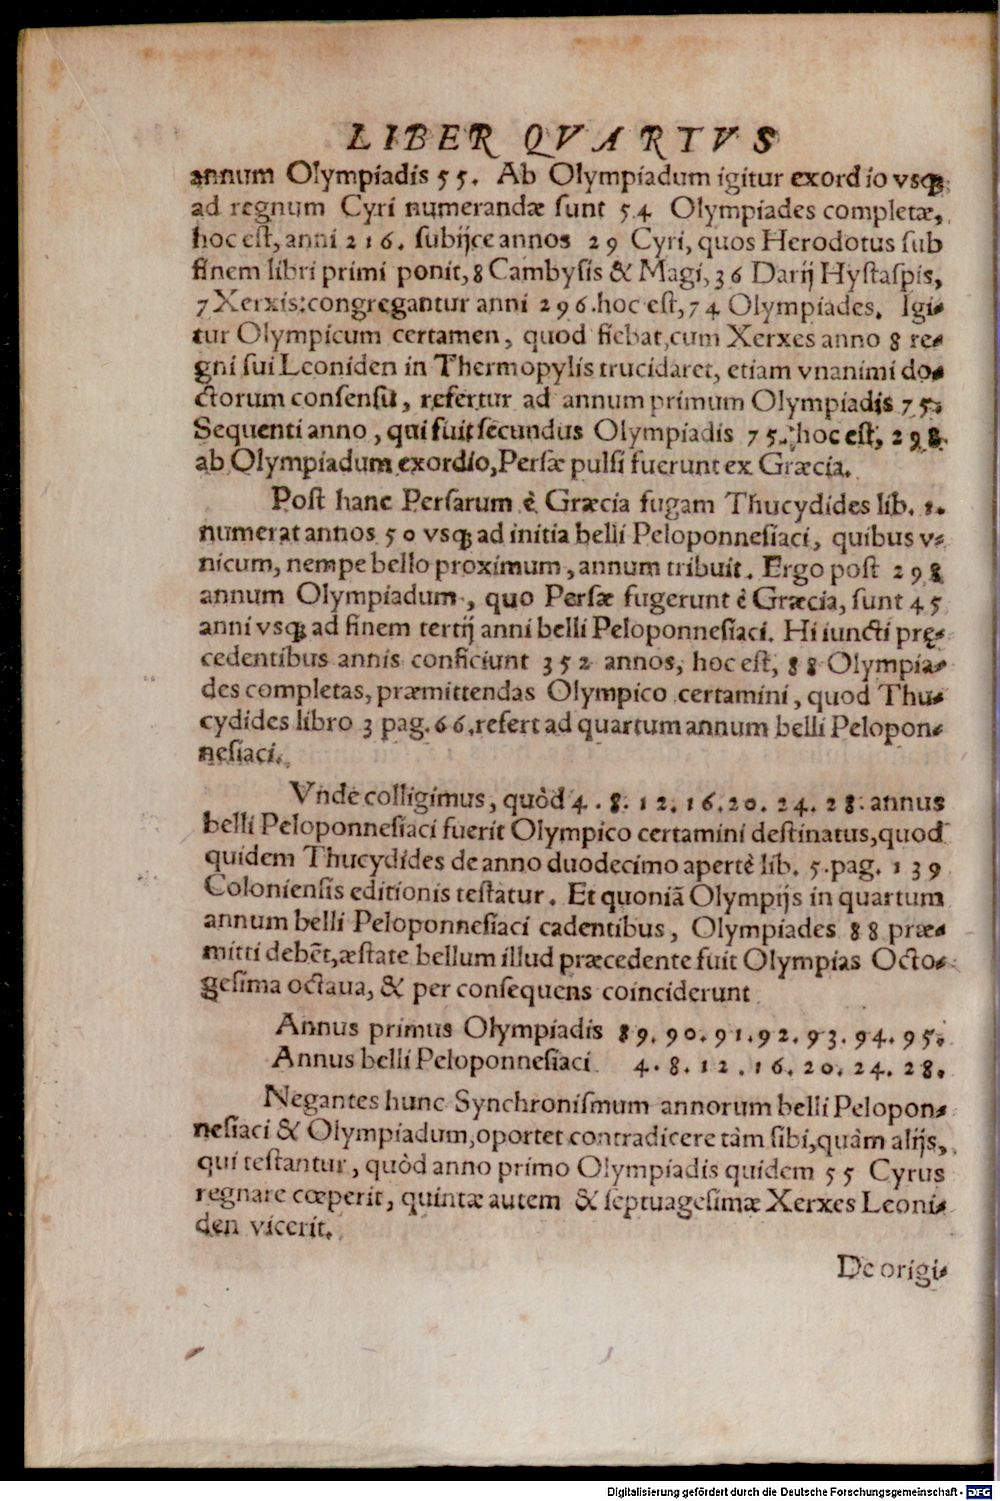 LIBER QVARTVS
annum Olympiadis 55. Ab Olympiadum igitur exordio vsq;
ad regnum Cyri numerandæ sunt 54 Olympiades completæ,
hoc est, anni 216. subijce annos 29 Cyri, quos Herodotus sub
finem libri primi ponit, 8 Cambysis & Magi, 36 Darij Hystaspis,
7 Xerxis: congregantur anni 296. hoc est, 74 Olympiades. Igi-
tur Olympicum certamen, quod fiebat, cum Xerxes anno 8 re-
gni sui Leoniden in Thermopylis trucidaret, etiam vnanimi do-
ctorum consensu, refertur ad annum primum Olympiadis 75.
Sequenti anno, qui fuit secundus Olympiadis 75. hoc est, 298
ab Olympiadum exordio, Persæ pulsi fuerunt ex Græcia.
Post hanc Persarum è Græcia fugam Thucydides lib. 1.
numerat annos 50 vsq; ad initia belli Peloponnesiaci, quibus v-
nicum, nempe bello proximum, annum tribuit. Ergo post 298
annum Olympiadum, quo Persæ fugerunt è Græcia, sunt 45
anni vsq; ad finem tertij anni belli Peloponnesiaci. Hi iuncti prę-
cedentibus annis conficiunt 352 annos, hoc est, 88 Olympia-
des completas, præmittendas Olympico certamini, quod Thu-
cydides libro 3 pag. 66. refert ad quartum annum belli Pelopon-
nesiaci.
Vnde colligimus, quòd 4. 8. 12. 16. 20. 24. 28. annus
belli Peloponnesiaci fuerit Olympico certamini destinatus, quod
quidem Thucydides de anno duodecimo apertè lib. 5. pag. 139
Coloniensis editionis testatur. Et quoniã Olympijs in quartum
annum belli Peloponnesiaci cadentibus, Olympiades 88 præ-
mitti debẽt, æstate bellum illud præcedente fuit Olympias Octo-
gesima octaua, & per consequens coinciderunt
Annus primus Olympiadis 89. 90. 91. 92. 93. 94. 95.
Annus belli Peloponnesiaci 4. 8. 12. 16. 20. 24. 28.
Negantes hunc Synchronismum annorum belli Pelopon-
nesiaci & Olympiadum, oportet contradicere tàm sibi, quàm alijs,
qui testantur, quòd anno primo Olympiadis quidem 55 Cyrus
regnare cœperit, quintæ autem & septuagesimæ Xerxes Leoni-
den vicerit.
De origi-
Digitalisierung gefördert durch die Deutsche Forschungsgemeinschaft - DFG